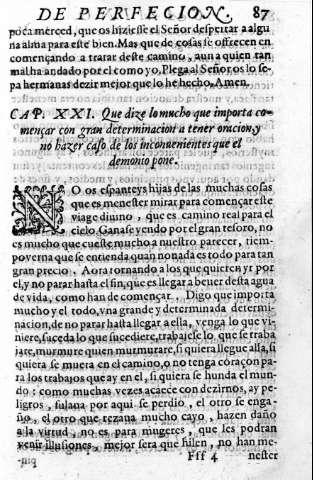 DE PERFECION. 87
poca merced, que os hiziesse el Señor despertar a algu
na alma para este bien. Mas que de cosas se ofrecen en
començando a tratar deste camino, aun a quien tan
mal ha andado por el como yo. Plega al Señor os lo se-
pa hermanas dezir mejor que lo he hecho, Amen.
CAP. XXI. Que dize lo mucho que importa co-
mençar con gran determinacion a tener oracion, y
no hazer caso de los inconuenientes que el
demonio pone.
NO os espanteys hijas de las muchas cosas
que es menester mirar para començar este
viage diuino, que es camino real para el
cielo. Ganase yendo por el gran tesoro, no
es mucho que cueste mucho a nuestro parecer, tiem-
po verna que se entienda quan nonada es todo para tan
gran precio. Aora tornando a los que quieren yr por
el, y no parar hasta el fin, que es llegar a beuer desta agua
de vida, como han de començar. Digo que importa
mucho y el todo, vna grande y determinada determi-
nacion, de no parar hasta llegar a ella, venga lo que vi-
niere, suceda lo que sucediere, trabajese lo que se traba
jare, murmure quien murmurare, si quiera llegue alla, si
quiera se muera en el camino, o no tenga coraçon pa-
ra los trabajos que ay en el, si quiera se hunda el mun-
do: como muchas vezes acaece con dezirnos, ay pe-
ligros, fulana por aqui se perdio, el otro se enga-
ño, el otro que rezaua mucho cayo, hazen daño
a la virtud, no es para mugeres, que les podran
venir illusiones, mejor sera que hilen, no han me-
Fff 4 nester